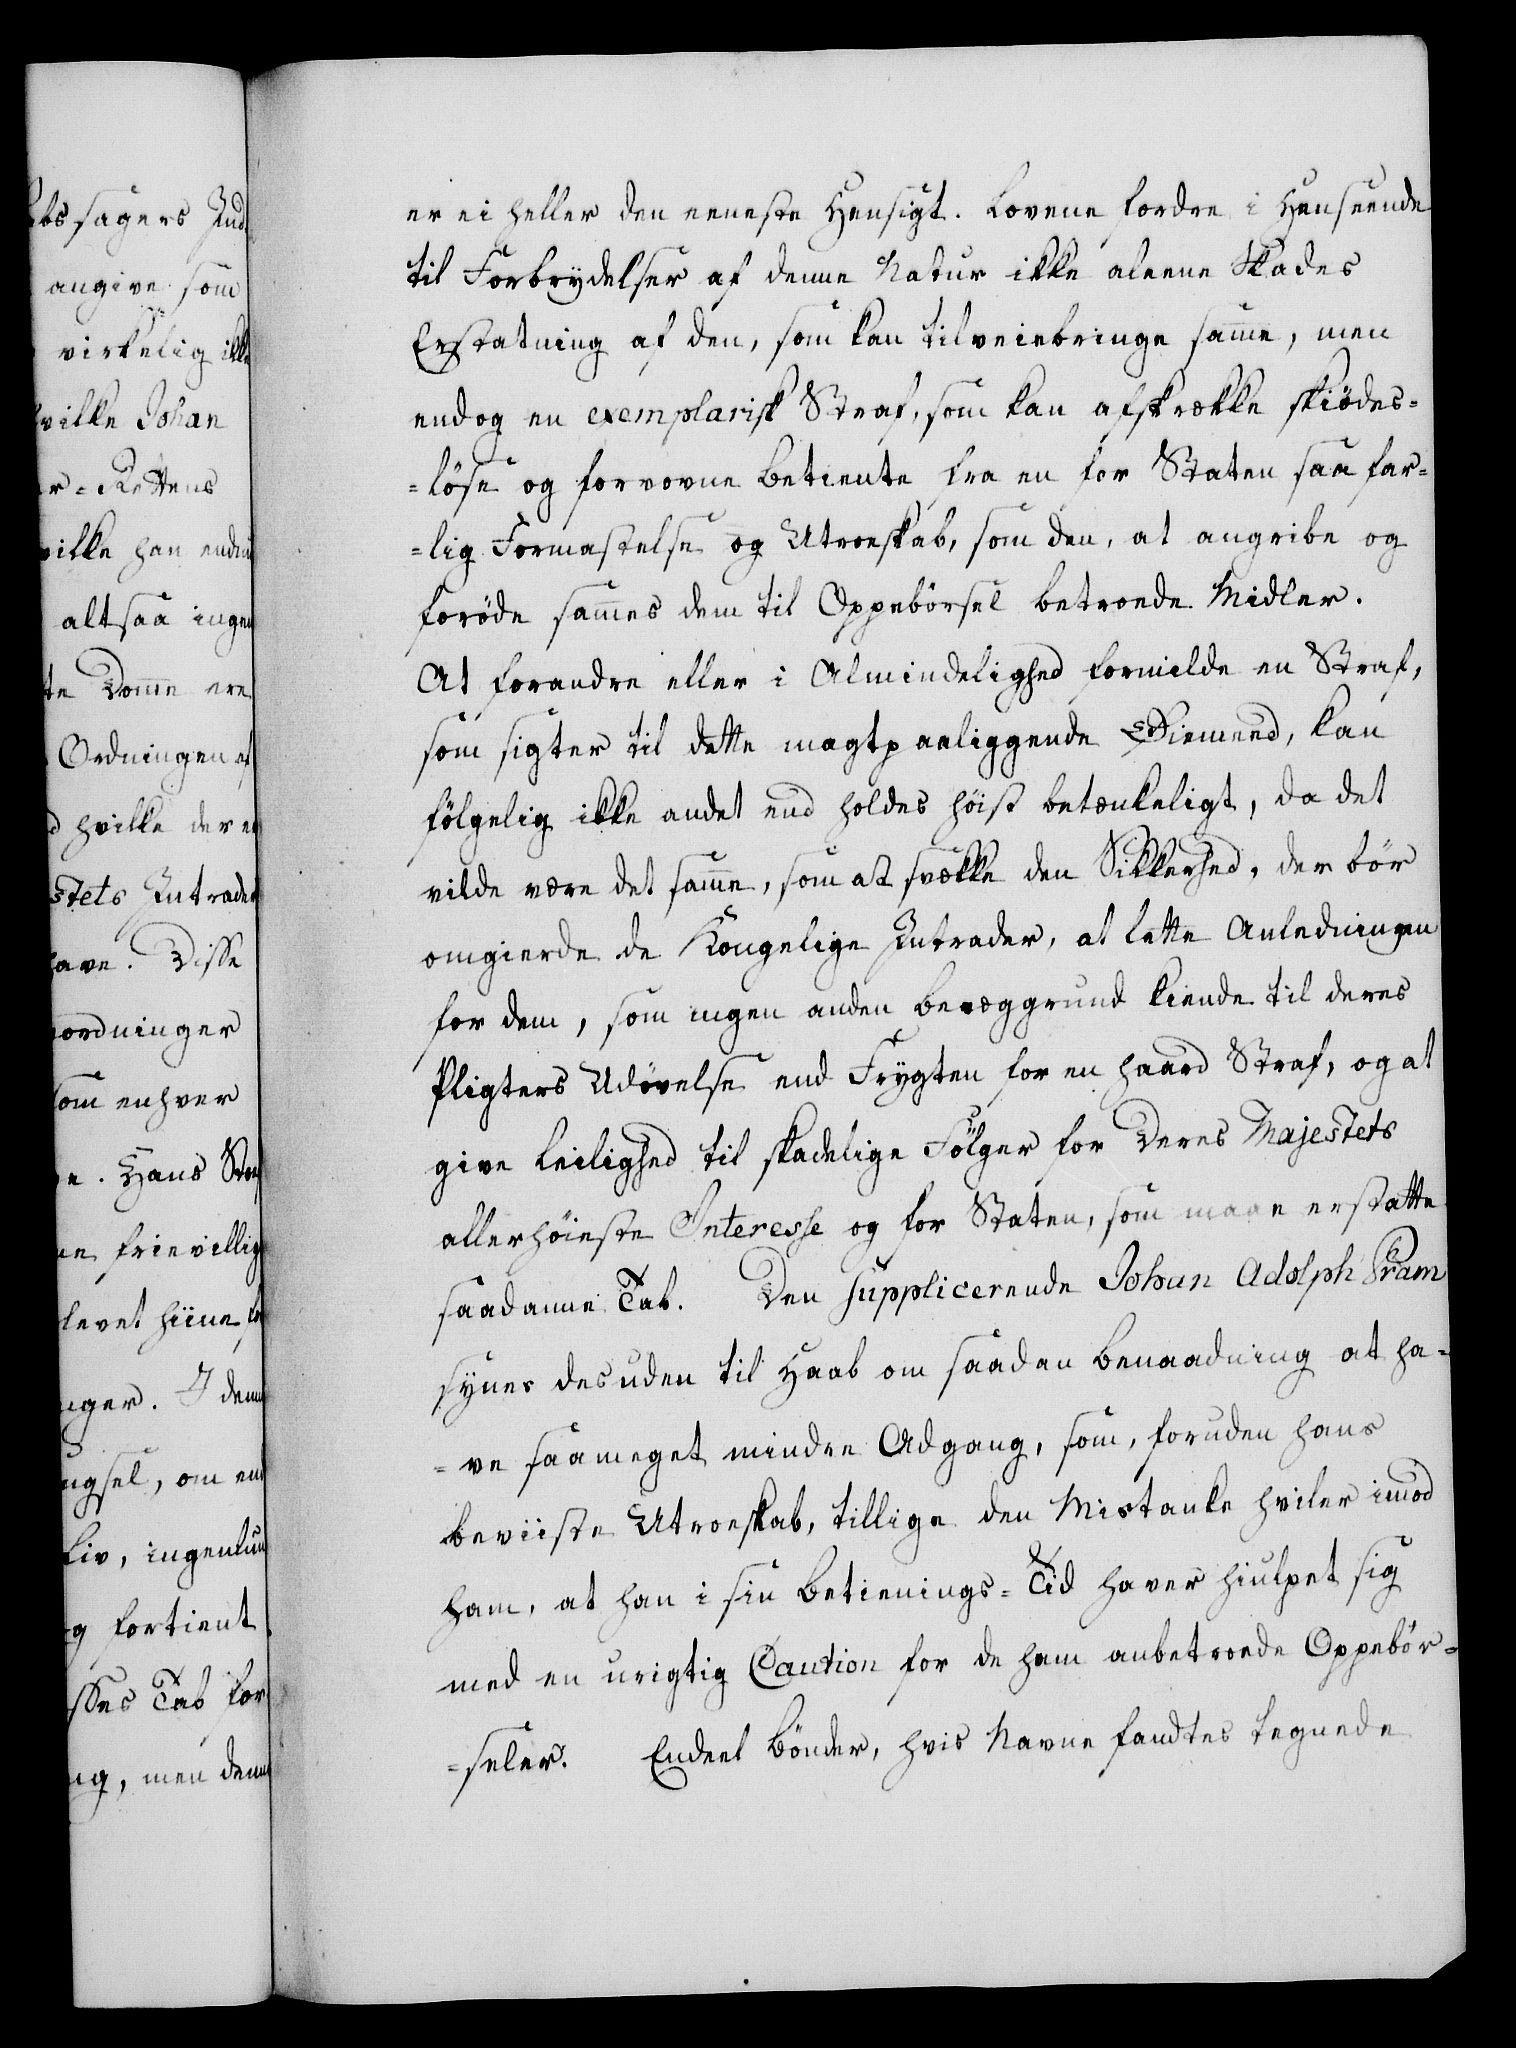 bs sagers Ind
angive som
virkelig ikke
vilke Johan
r=Rettens
vilke han endnu
altsaa ingen
te Domme ere
Ordningen af
d hvilke der er
stets Intrader
have. Disse
ordninger
som enhver
e. Hans Straf
ne frievillig
levet hiine for
nger. I denne
ngsel, om end
Liv, ingenlun
g fortient
sses Tab for
ng, men denne
er ei heller den eeneste Hensigt. Lovene fordre i Henseende
til Forbrydelser af denne Natur ikke aleene Skades
Erstatning af den, som kan tilveiebringe samme, men
endog en exemplarisk Straf, som kan afskrække skiödes=
=löse og forvovne Betiente fra en for Staten saa far=
=lig Formastelse og Utroeskab, som den, at angribe og
foröde sammes dem til Oppebörsel betroede Midler.
At forandre eller i Almindelighed formilde en Straf,
som sigter til dette magtpaaliggende Öiemeed, kan
fölgelig ikke andet end holdes höist betænkeligt, da det
vilde være det samme, som at svække den Sikkerhed, der bör
omgierde de Kongelige Intrader, at lette Anledningen
for dem, som ingen anden Bevæggrund kiende til deres
Pligters Udövelse end Frygten for en haard Straf, og at
give Leilighed til skadelige Fölger for Deres Majestets
allerhöieste Interesse og for Staten, som maae erstatte
saadanne Tab. Den supplicerende Johan Adolph Pram
synes desuden til Haab om saadan Benaadning at ha=
=ve saameget mindre Adgang, som, foruden hans
beviiste Utroeskab, tillige den Mistanke hviler imod
ham, at han i sin Betienings=Tid haver hiulpet sig
med en urigtig Caution for de ham anbetroede Oppebör=
=seler. Endeel Bönder, hvis Navne fandtes tegnede